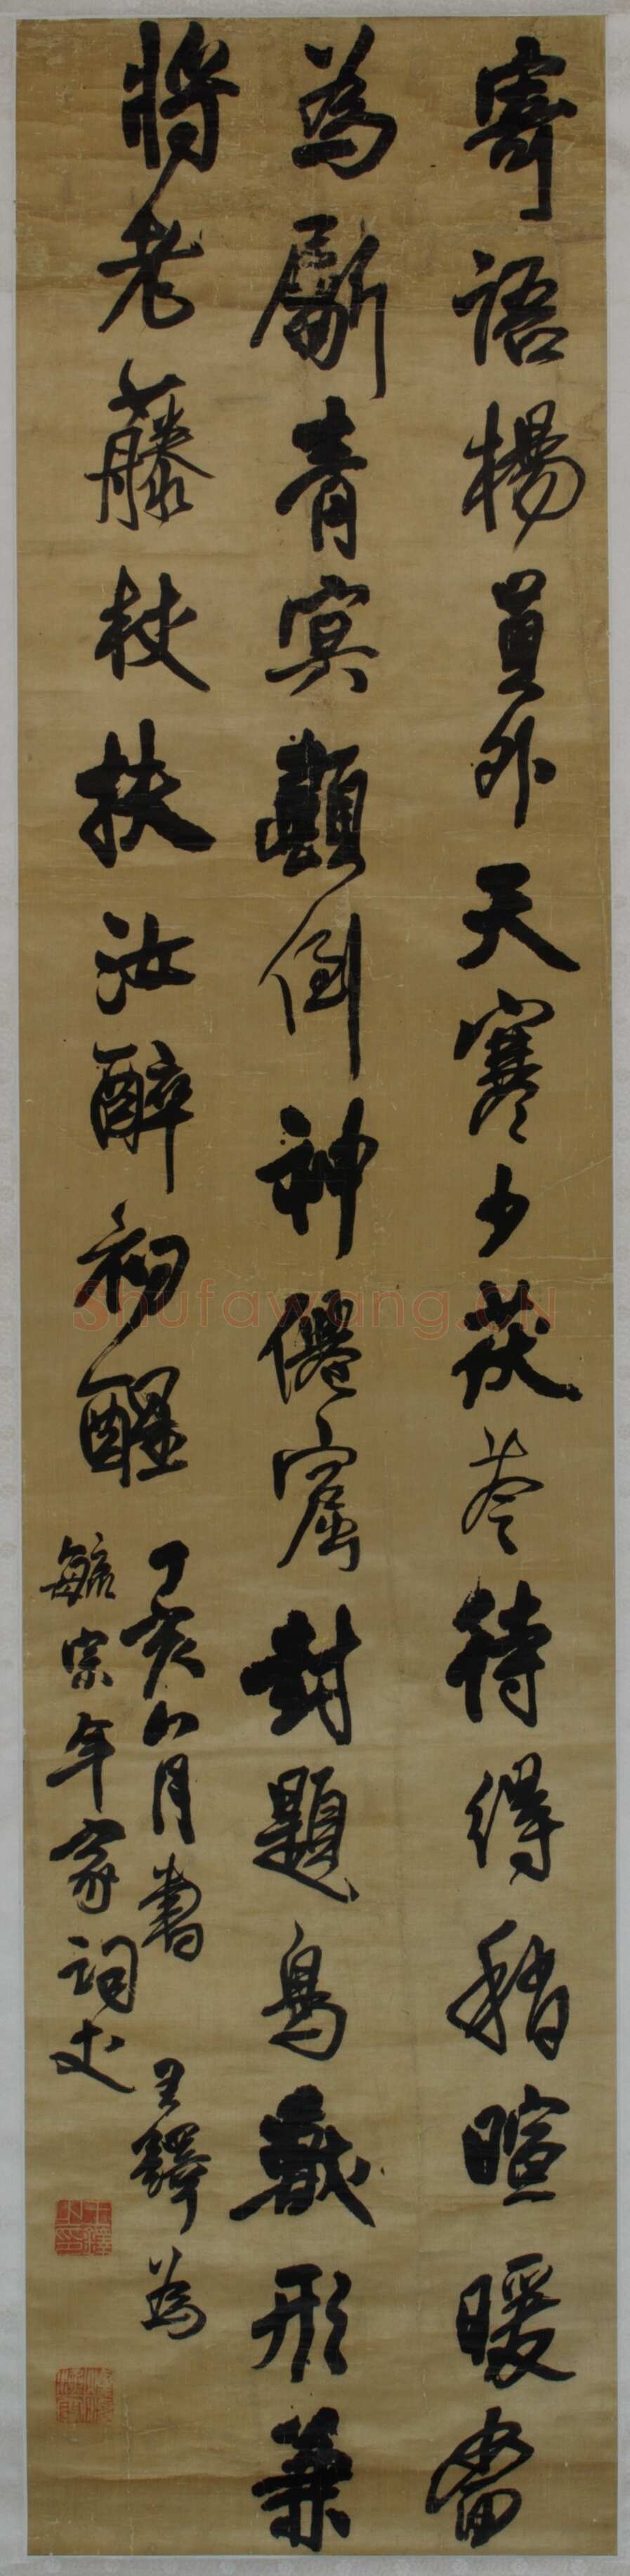 寄語楊員外天寒少茯苓待得稍暄暖當
為斸青冥顛倒神僊窟封題鳥獸形兼
將老藤杖扶汝醉初醒
丁亥八月書 王鐸為
毓宗年家詞丈
Shufawang.CN